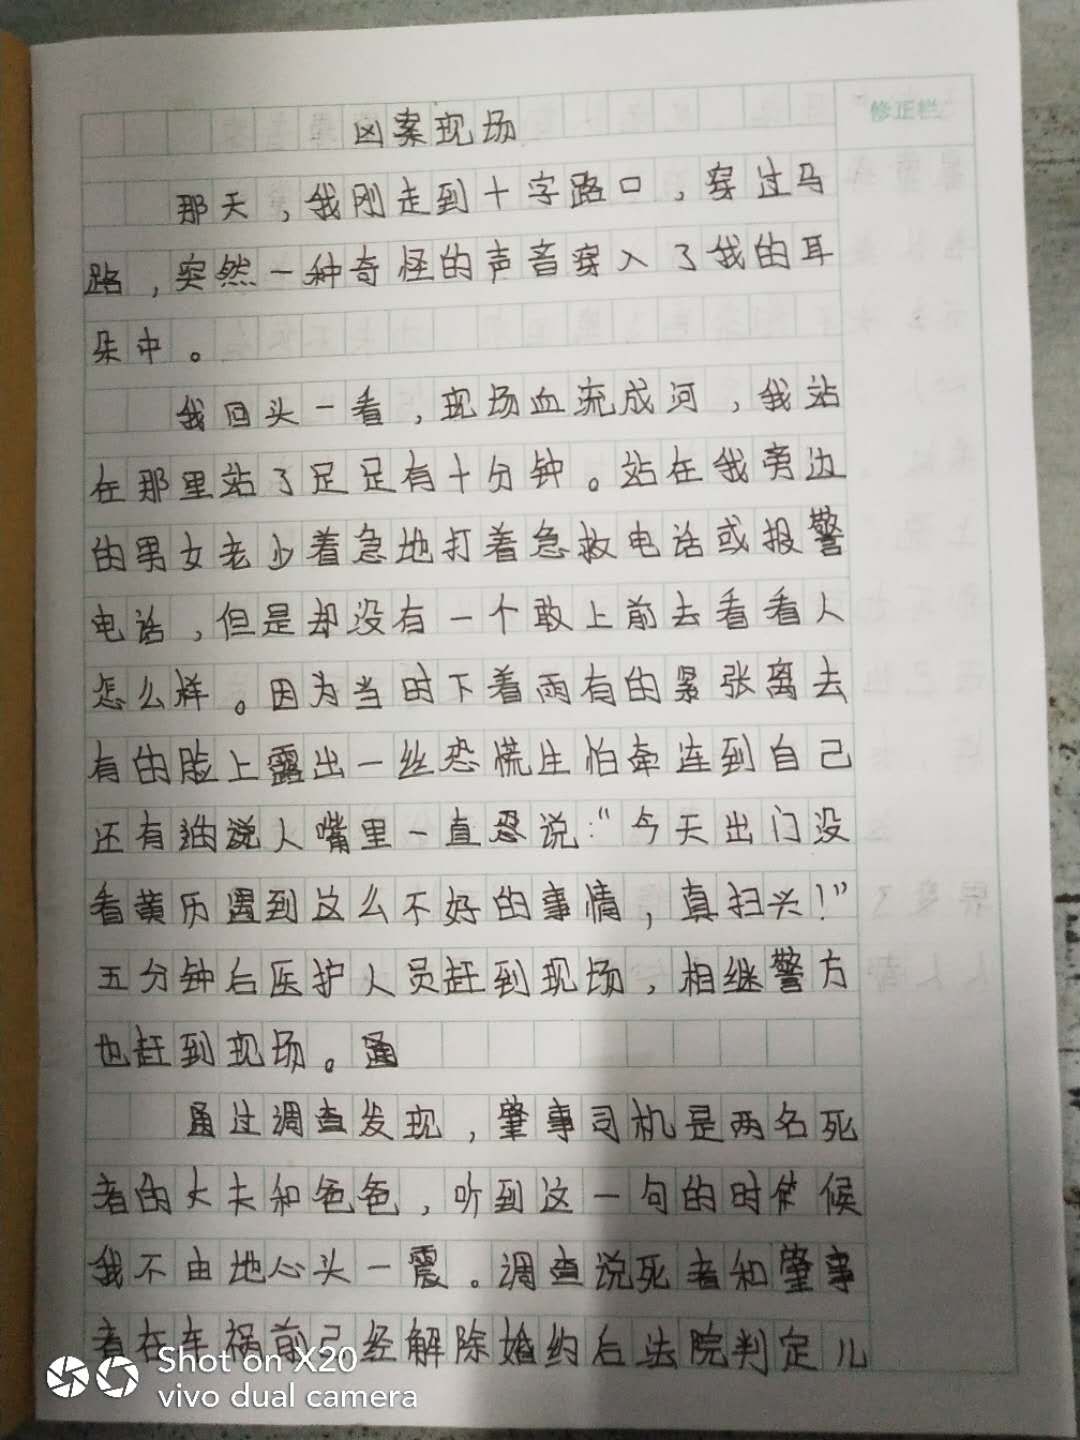 凶案现场
修正栏
那天，我刚走到十字路口，穿过马
路，突然一种奇怪的声音穿入了我的耳
朵中。
我回头一看，现场血流成河，我站
在那里站了足足有十分钟。站在我旁边
的男女老少着急地打着急救电话或报警
电话，但是却没有一个敢上前去看看人
怎么样。因为当时下着雨有的紧张离去
有的脸上露出一丝恐慌生怕牵连到自己
还有人嘴里一直说："今天出门没
看黄历遇到这么不好的事情，真扫兴！"
五分钟后医护人员赶到现场，相继警方
也赶到现场。通
通过调查发现，肇事司机是两名死
者的丈夫和爸爸，听到这一句的时候
我不由地心头一震。调查说死者和肇事
者在车祸前已经解除婚约后法院判定儿
Shot on X20
vivo dual camera